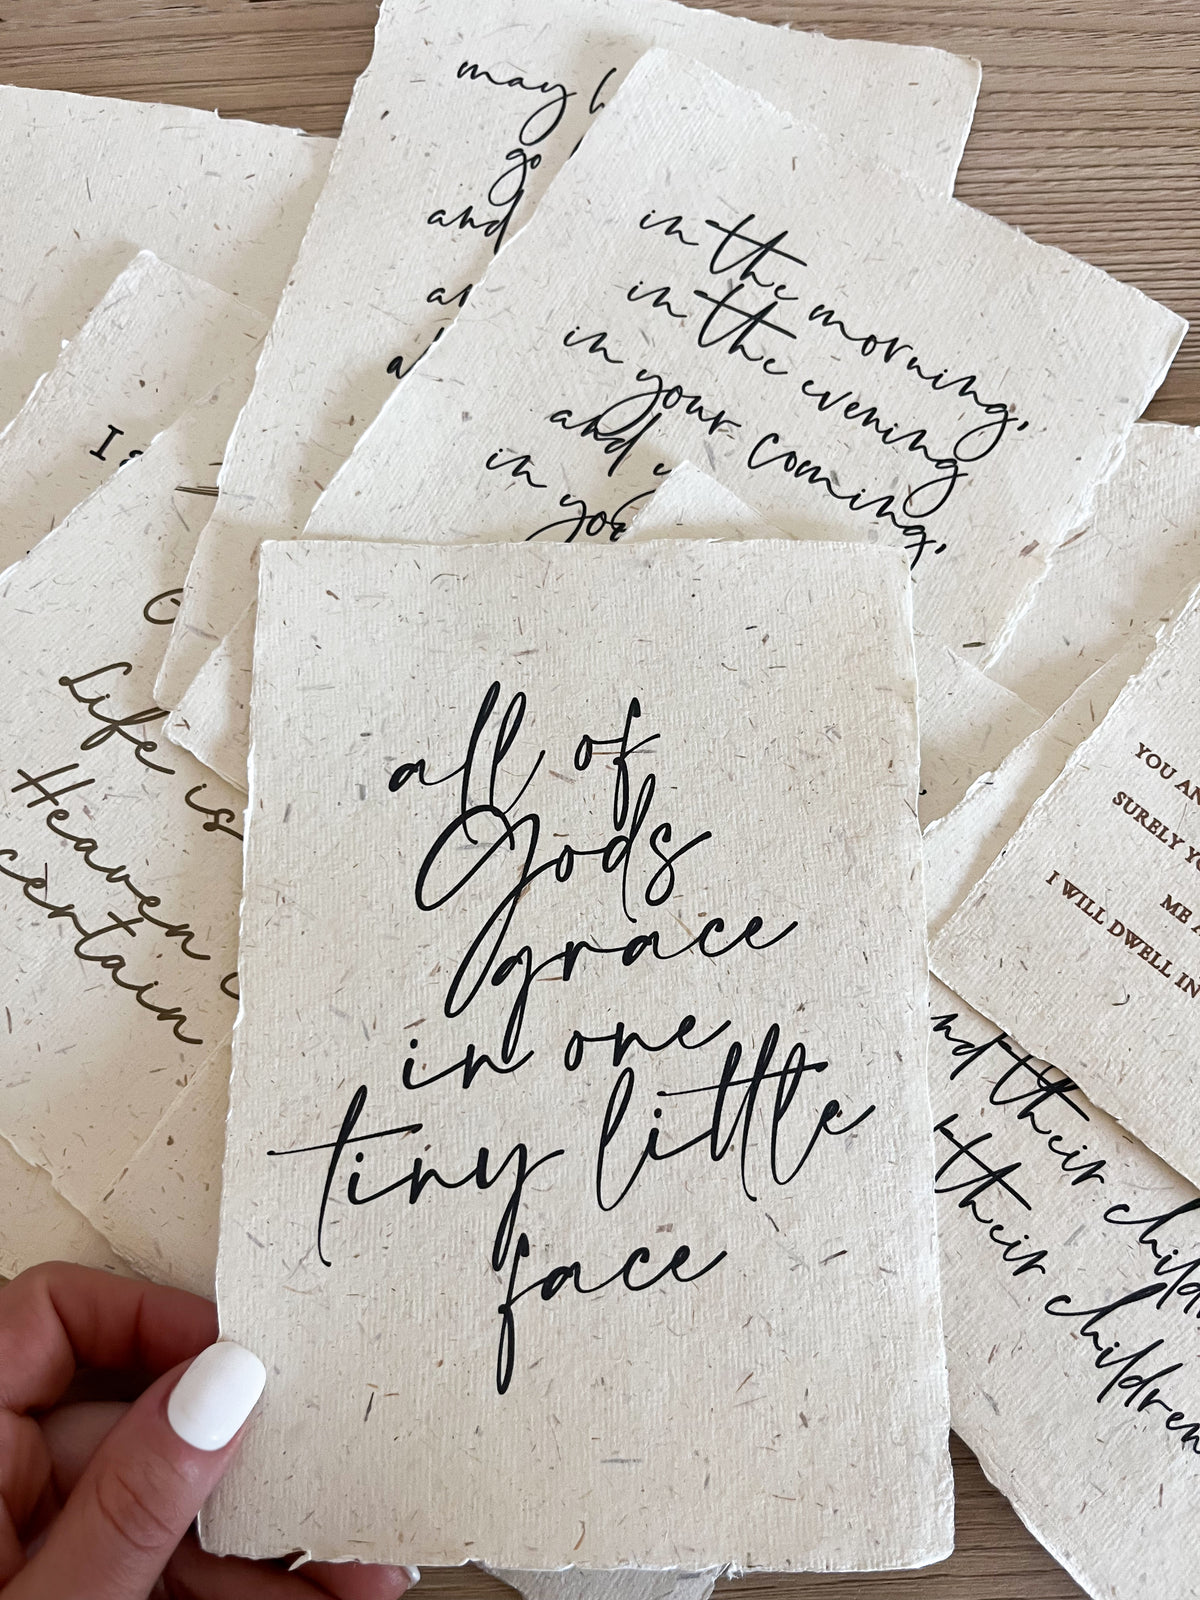 may
go
and
in the morning,
in the evening
in your coming,
and
in
I
Life is
Heaven
certain
all of
Gods
grace
in one
tiny little
face
YOU
SURELY
ME
I WILL DWELL IN
and their
their children